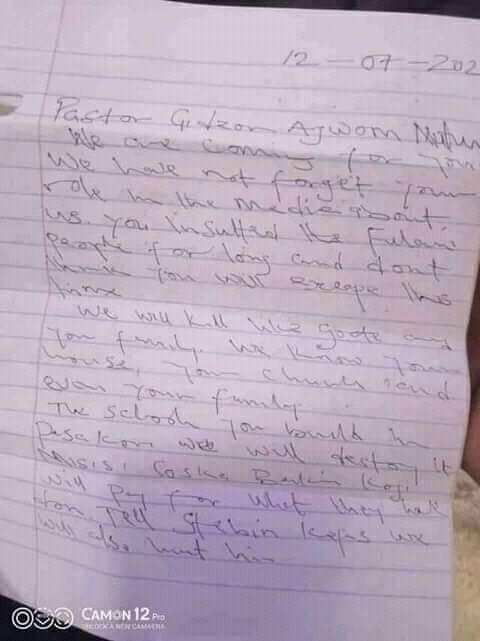 12-07-202
Pastor Gideon Agwom
We are coming for you
We have not forget your
role in the media about
us. you insulted the Fulani
people for long and dont
think you will escape this
time
We will kill like goate and
you family. We know your
house, your church and
even your family.
The school you build in
we will destroy it
will pay for what they have
don. Tell we
will also hunt him
CAMON 12 Pro
UNLOCK A NEW CAMERA